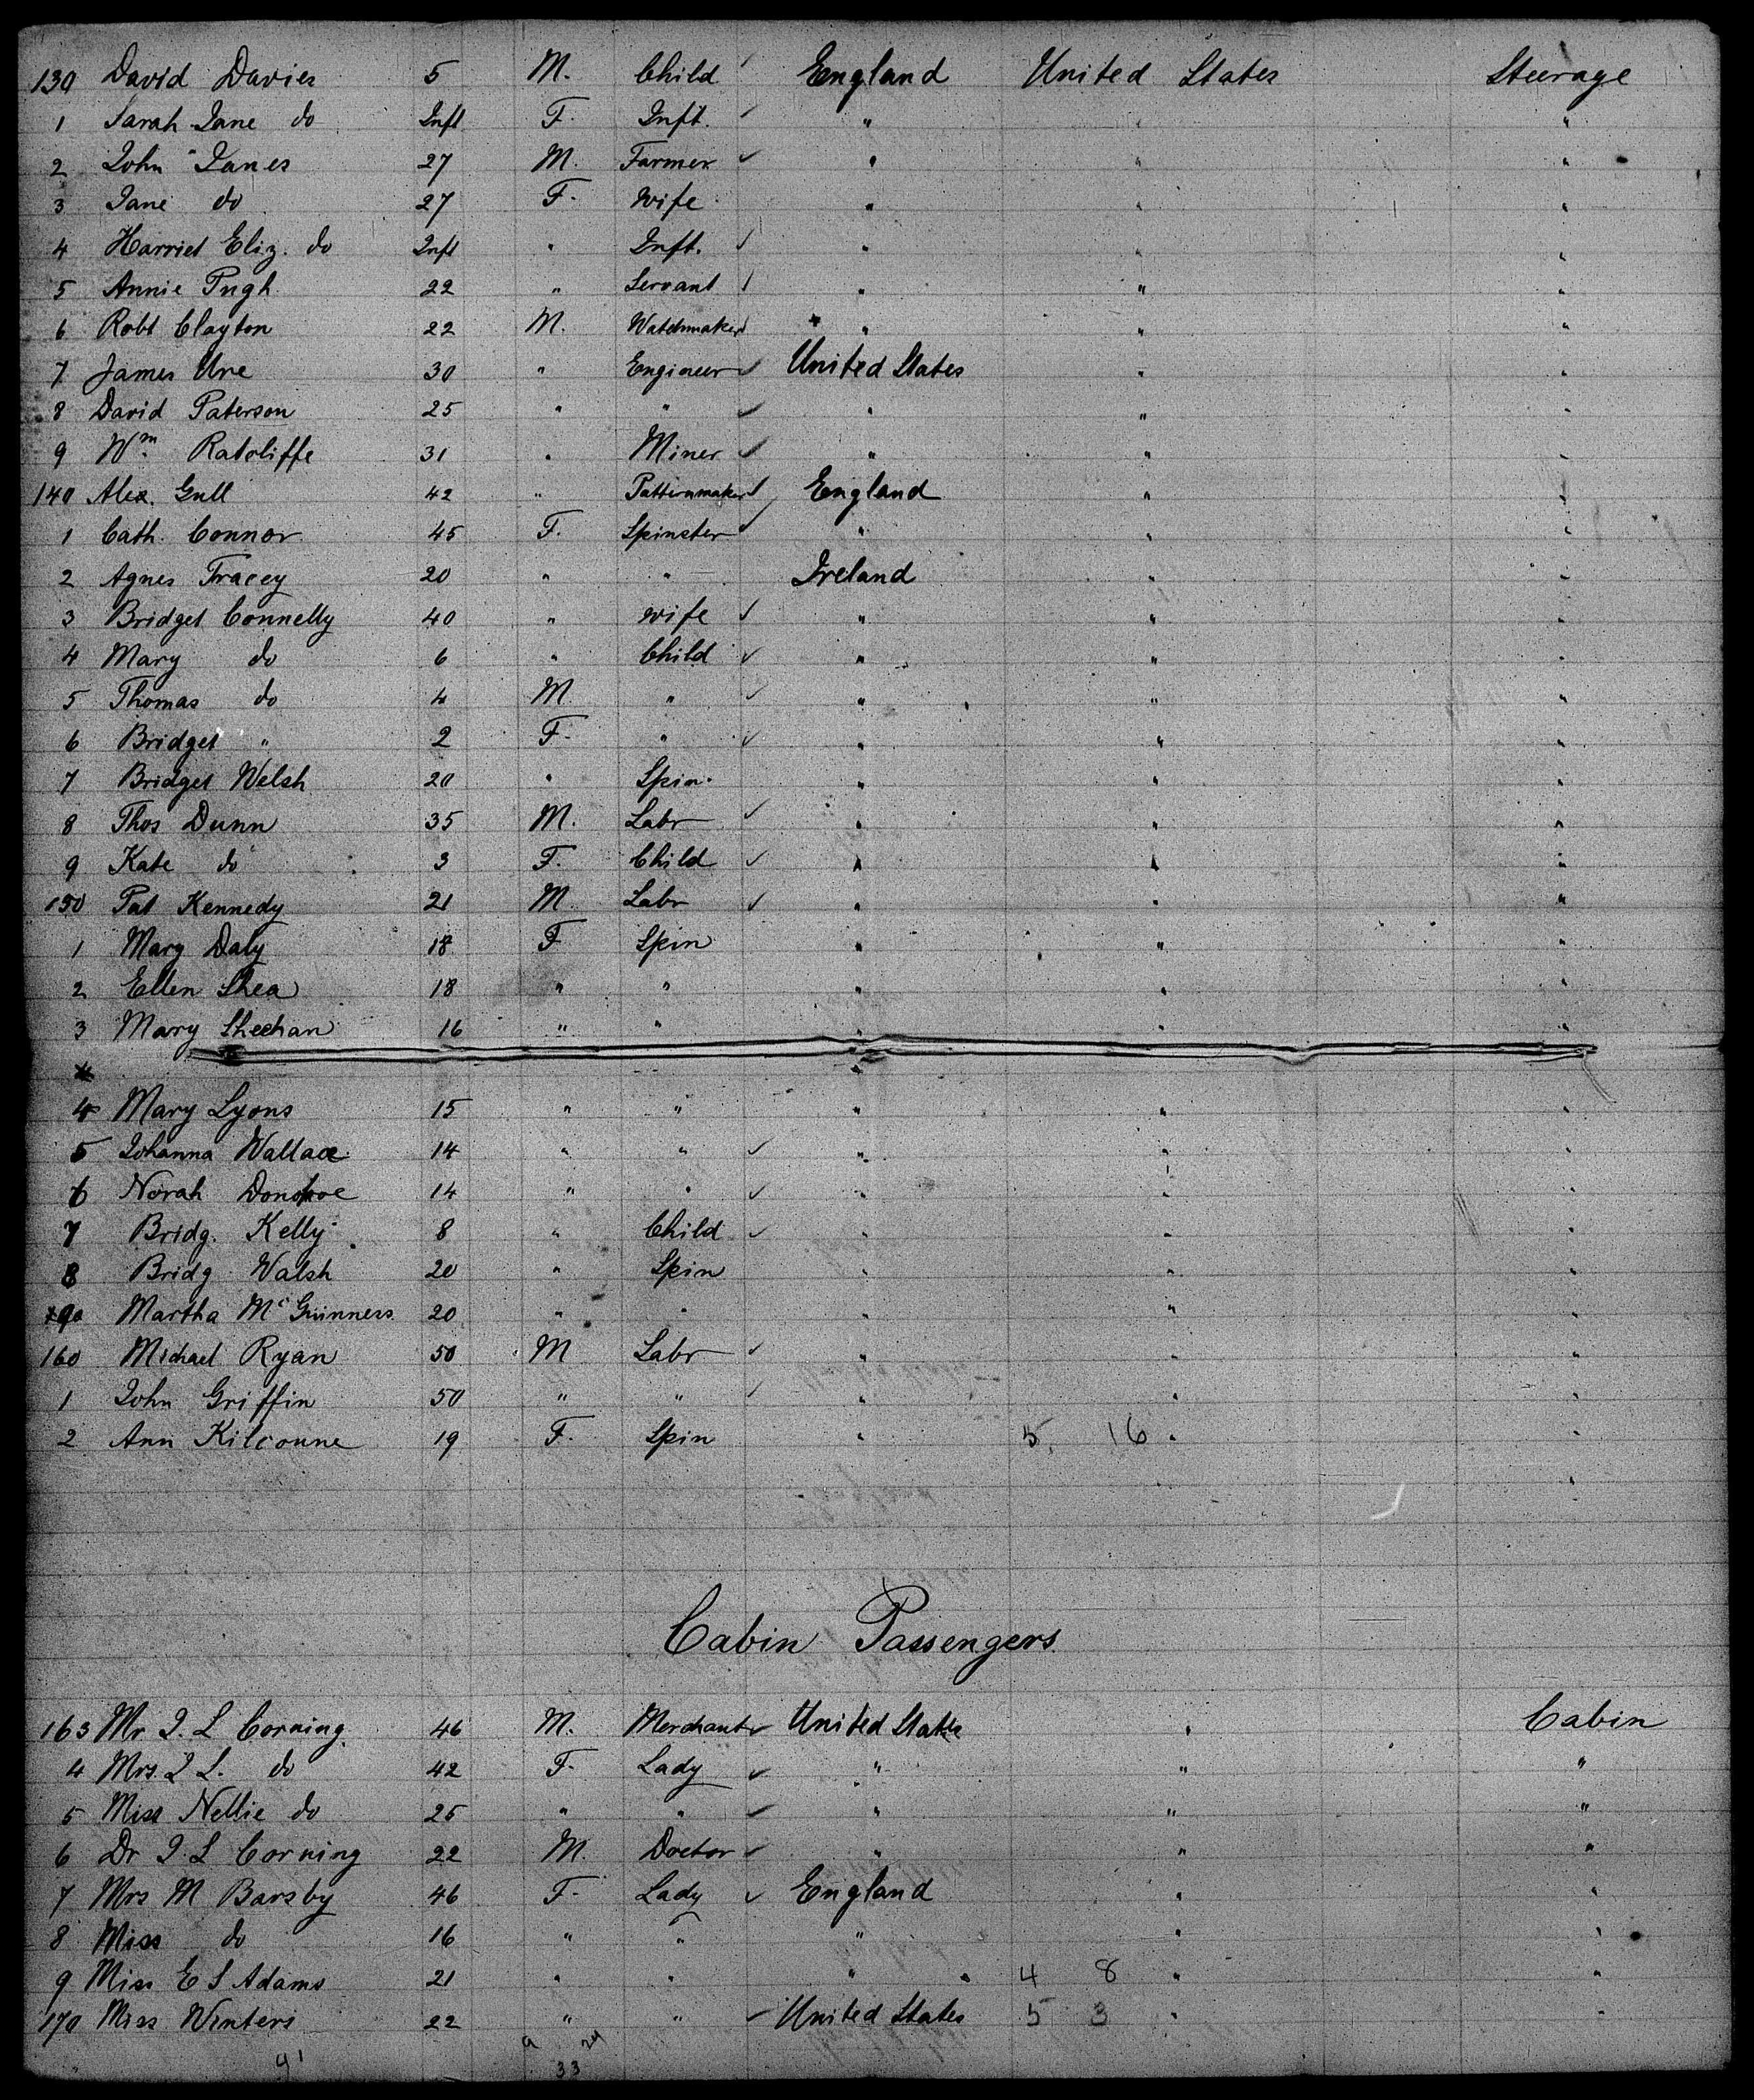 130 David Davies 5 M. Child England United States Steerage
1 Sarah Jane do Inft F. Inft. " " "
2 John Janes 27 M. Farmer " " "
3 Jane do 27 F. wife " " "
4 Harriet Eliz. do Inft " Inft. " " "
5 Annie Pugh 22 " Servant " " "
6 Robt Clayton 22 M. Watchmaker " " "
7 James Ure 30 " Engineer United States " "
8 David Paterson 25 " " " " "
9 Wm. Ratcliffe 31 " Miner " " "
140 Alex. Gull 42 " Patternmaker England " "
1 Cath. Connor 45 F. Spinster " " "
2 Agnes Tracey 20 " " Ireland " "
3 Bridget Connelly 40 " wife " " "
4 Mary do 6 " Child " " "
5 Thomas do 4 M. " " " "
6 Bridget " 2 F. " " " "
7 Bridget Welsh 20 " Spin. " " "
8 Thos Dunn 35 M. Labr " " "
9 Kate do 3 F. Child " " "
150 Pat Kennedy 21 M. Labr " " "
1 Mary Daly 18 F Spin " " "
2 Ellen Shea 18 " " " " "
3 Mary Sheehan 16 " " " " "
4 Mary Lyons 15 " " " " "
5 Johanna Wallace 14 " " " " "
6 Norah Donohoe 14 " " " " "
7 Bridg. Kelly 8 " Child " " "
8 Bridg. Walsh 20 " Spin " " "
9 Martha McGuinness 20 " " " " "
160 Michael Ryan 50 M Labr " " "
1 John Griffin 50 " " " " "
2 Ann Kilcoune 19 F. Spin " 5. 16 " "
Cabin Passengers
163 Mr J. L Corning 46 M. Merchant United States " Cabin
4 Mrs. J L. do 42 F. Lady " " "
5 Miss Nellie do 25 " " " " "
6 Dr J. L Corning 22 M. Doctor " " "
7 Mrs M Barsby 46 F. Lady England " "
8 Miss do 16 " " " " "
9 Miss E S Adams 21 " " " 4 8 " "
170 Miss Winters 22 " " United States 5 3 " "
33